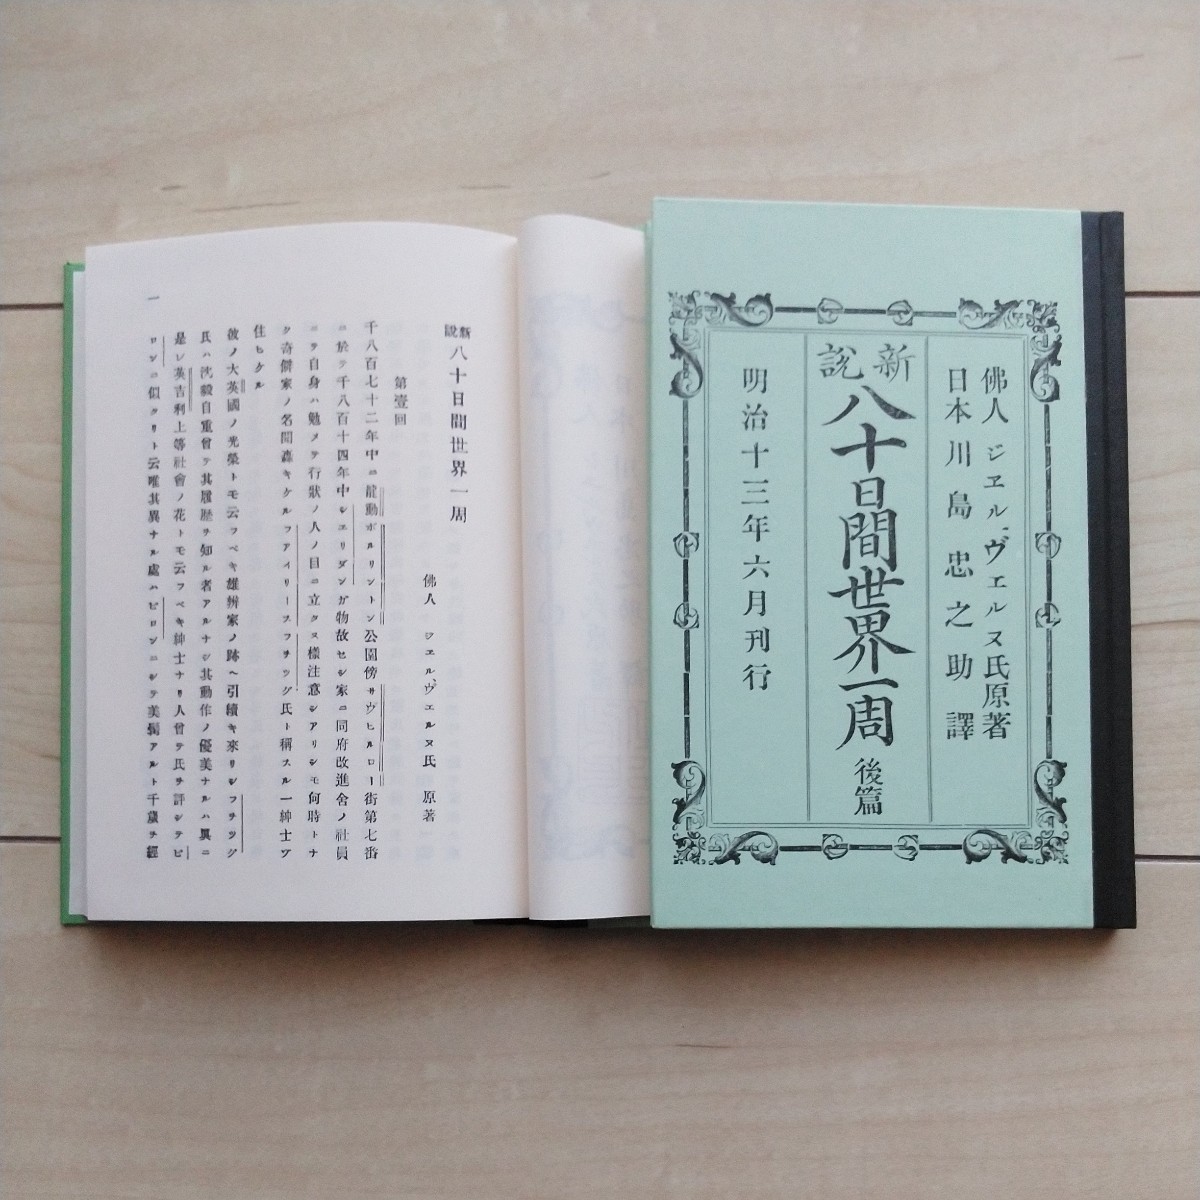 佛人 ジエル、ヴェルヌ氏原著
日本 川島忠之助 譯
新說
八十日間世界一周 後篇
明治十三年六月刊行
新說 八十日間世界一周
佛人 ジエル、ヴェルヌ氏 原著
第壹回
千八百七十二年中ニ龍動ボルリントン公園傍サヴヒルロー街第七番
ニ於テ千八百十四年中シエリダンガ物故セシ家ニ同府改進舍ノ社員
ニテ自身ハ勉メテ行狀ノ人ノ目ニ立タヌ樣注意シアリシモ何時トナ
ク奇僻家ノ名聞轟キケルフアイリースフヲッグ氏ト稱スル一紳士ゾ
住ヒケル
彼ノ大英國ノ光榮トモ云フベキ雄辨家ノ跡ヘ引續キ來リシフヲッグ
氏ハ沈毅自重曾テ其履歷ヲ知ル者アルナシ其動作ノ優美ナルハ眞ニ
是レ英吉利上等社會ノ花トモ云フベキ紳士ナリ人曾テ氏ヲ評シテビ
ロンニ似タリト云唯其異ナル處ハビロンニシテ美髯アルト千歲ヲ經
一